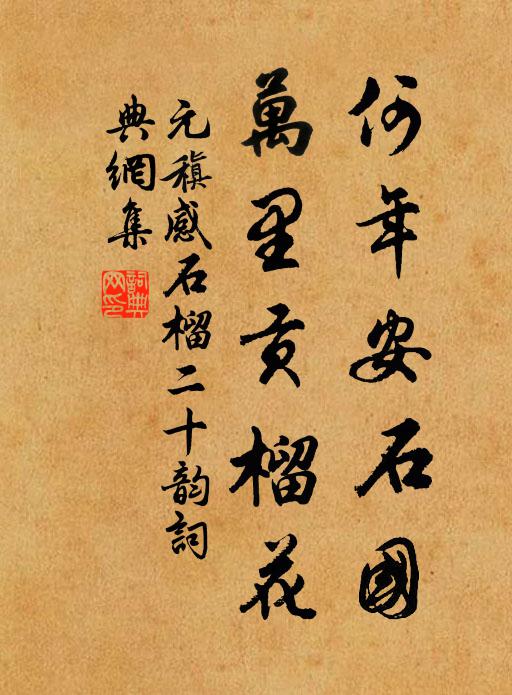 何年安石國
萬里貢榴花
元稹感石榴二十韵詞
典網集
詞典
网印